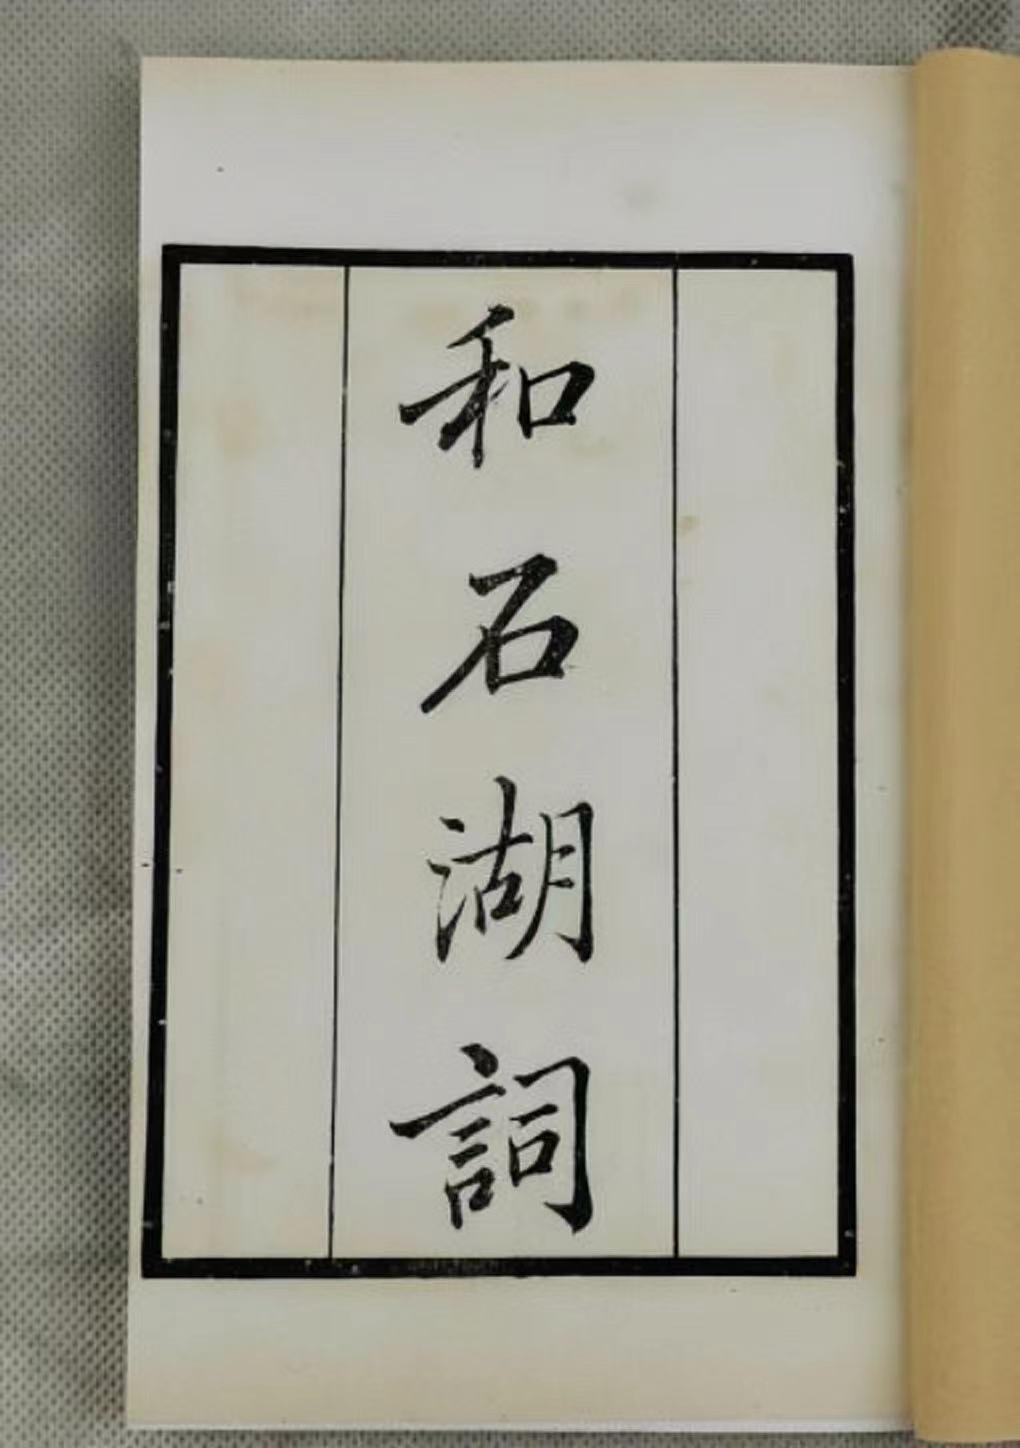 和石湖詞